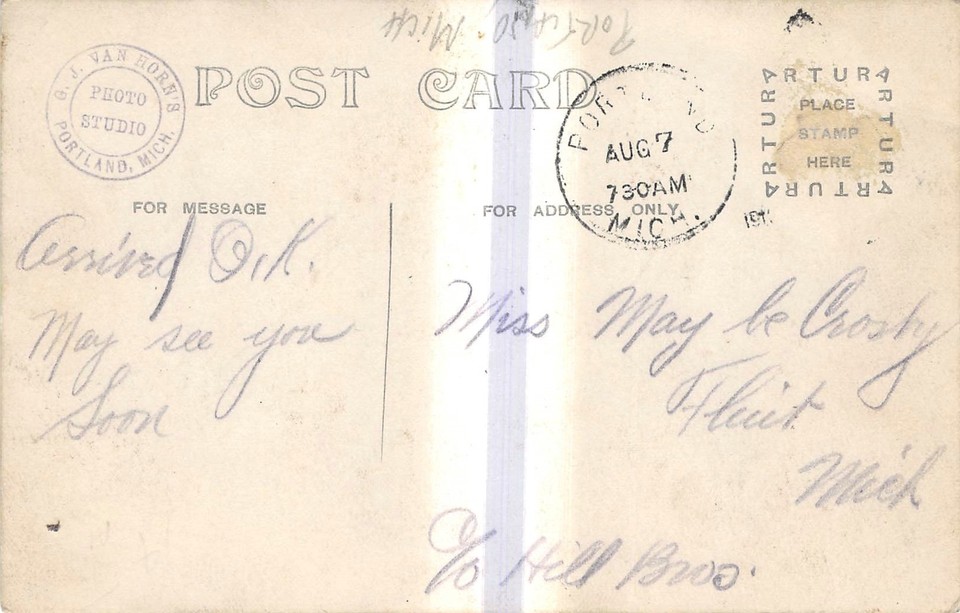 PORTLAND MICH
G. J. VAN HORN'S
PHOTO
STUDIO
PORTLAND, MICH.
POST CARD
PORTLAND
AUG 7
730AM
MICH.
ARTURA
ARTURA
ARTURA
ARTURA
PLACE
STAMP
HERE
FOR MESSAGE
FOR ADDRESS ONLY
Arrived O.K.
May see you
Soon
Miss May be Crosby
Flint
Mich
c/o Hill Bros.